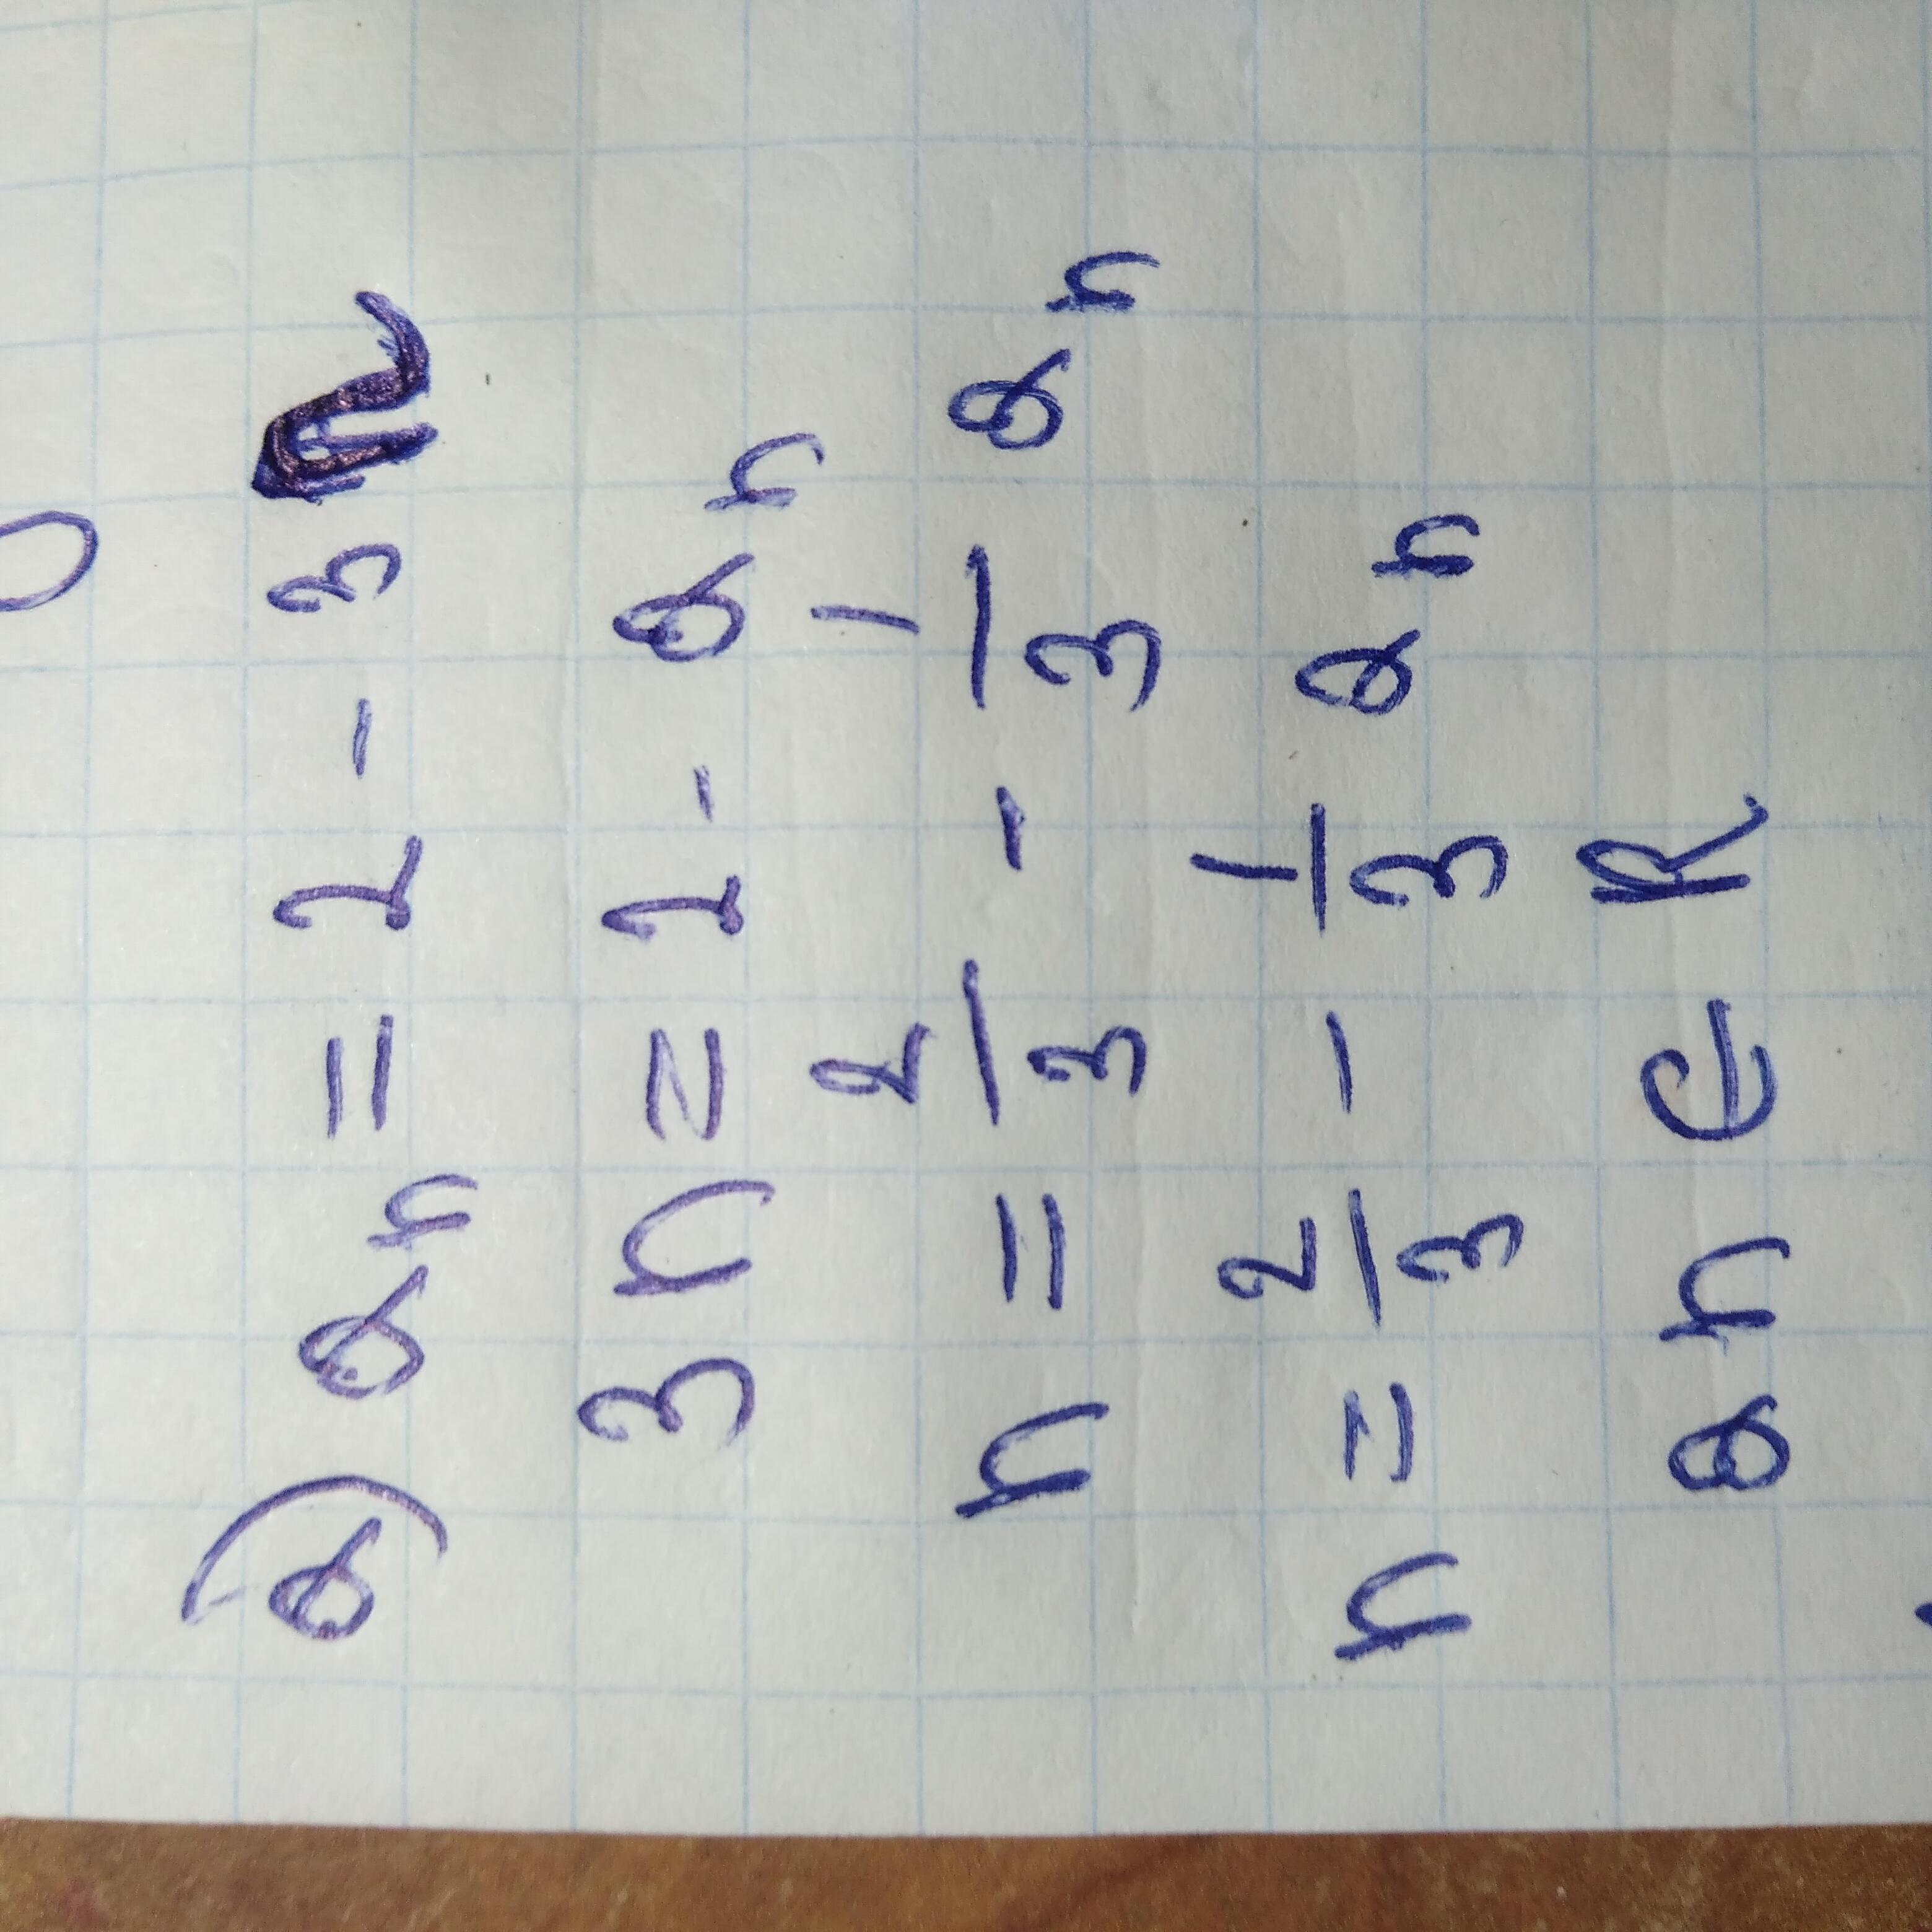 a) aₙ = 2 - 3n
3n = 2 - aₙ
n = 2/3 - 1/3 aₙ
n = 2/3 - 1/3 aₙ
a n ∈ R